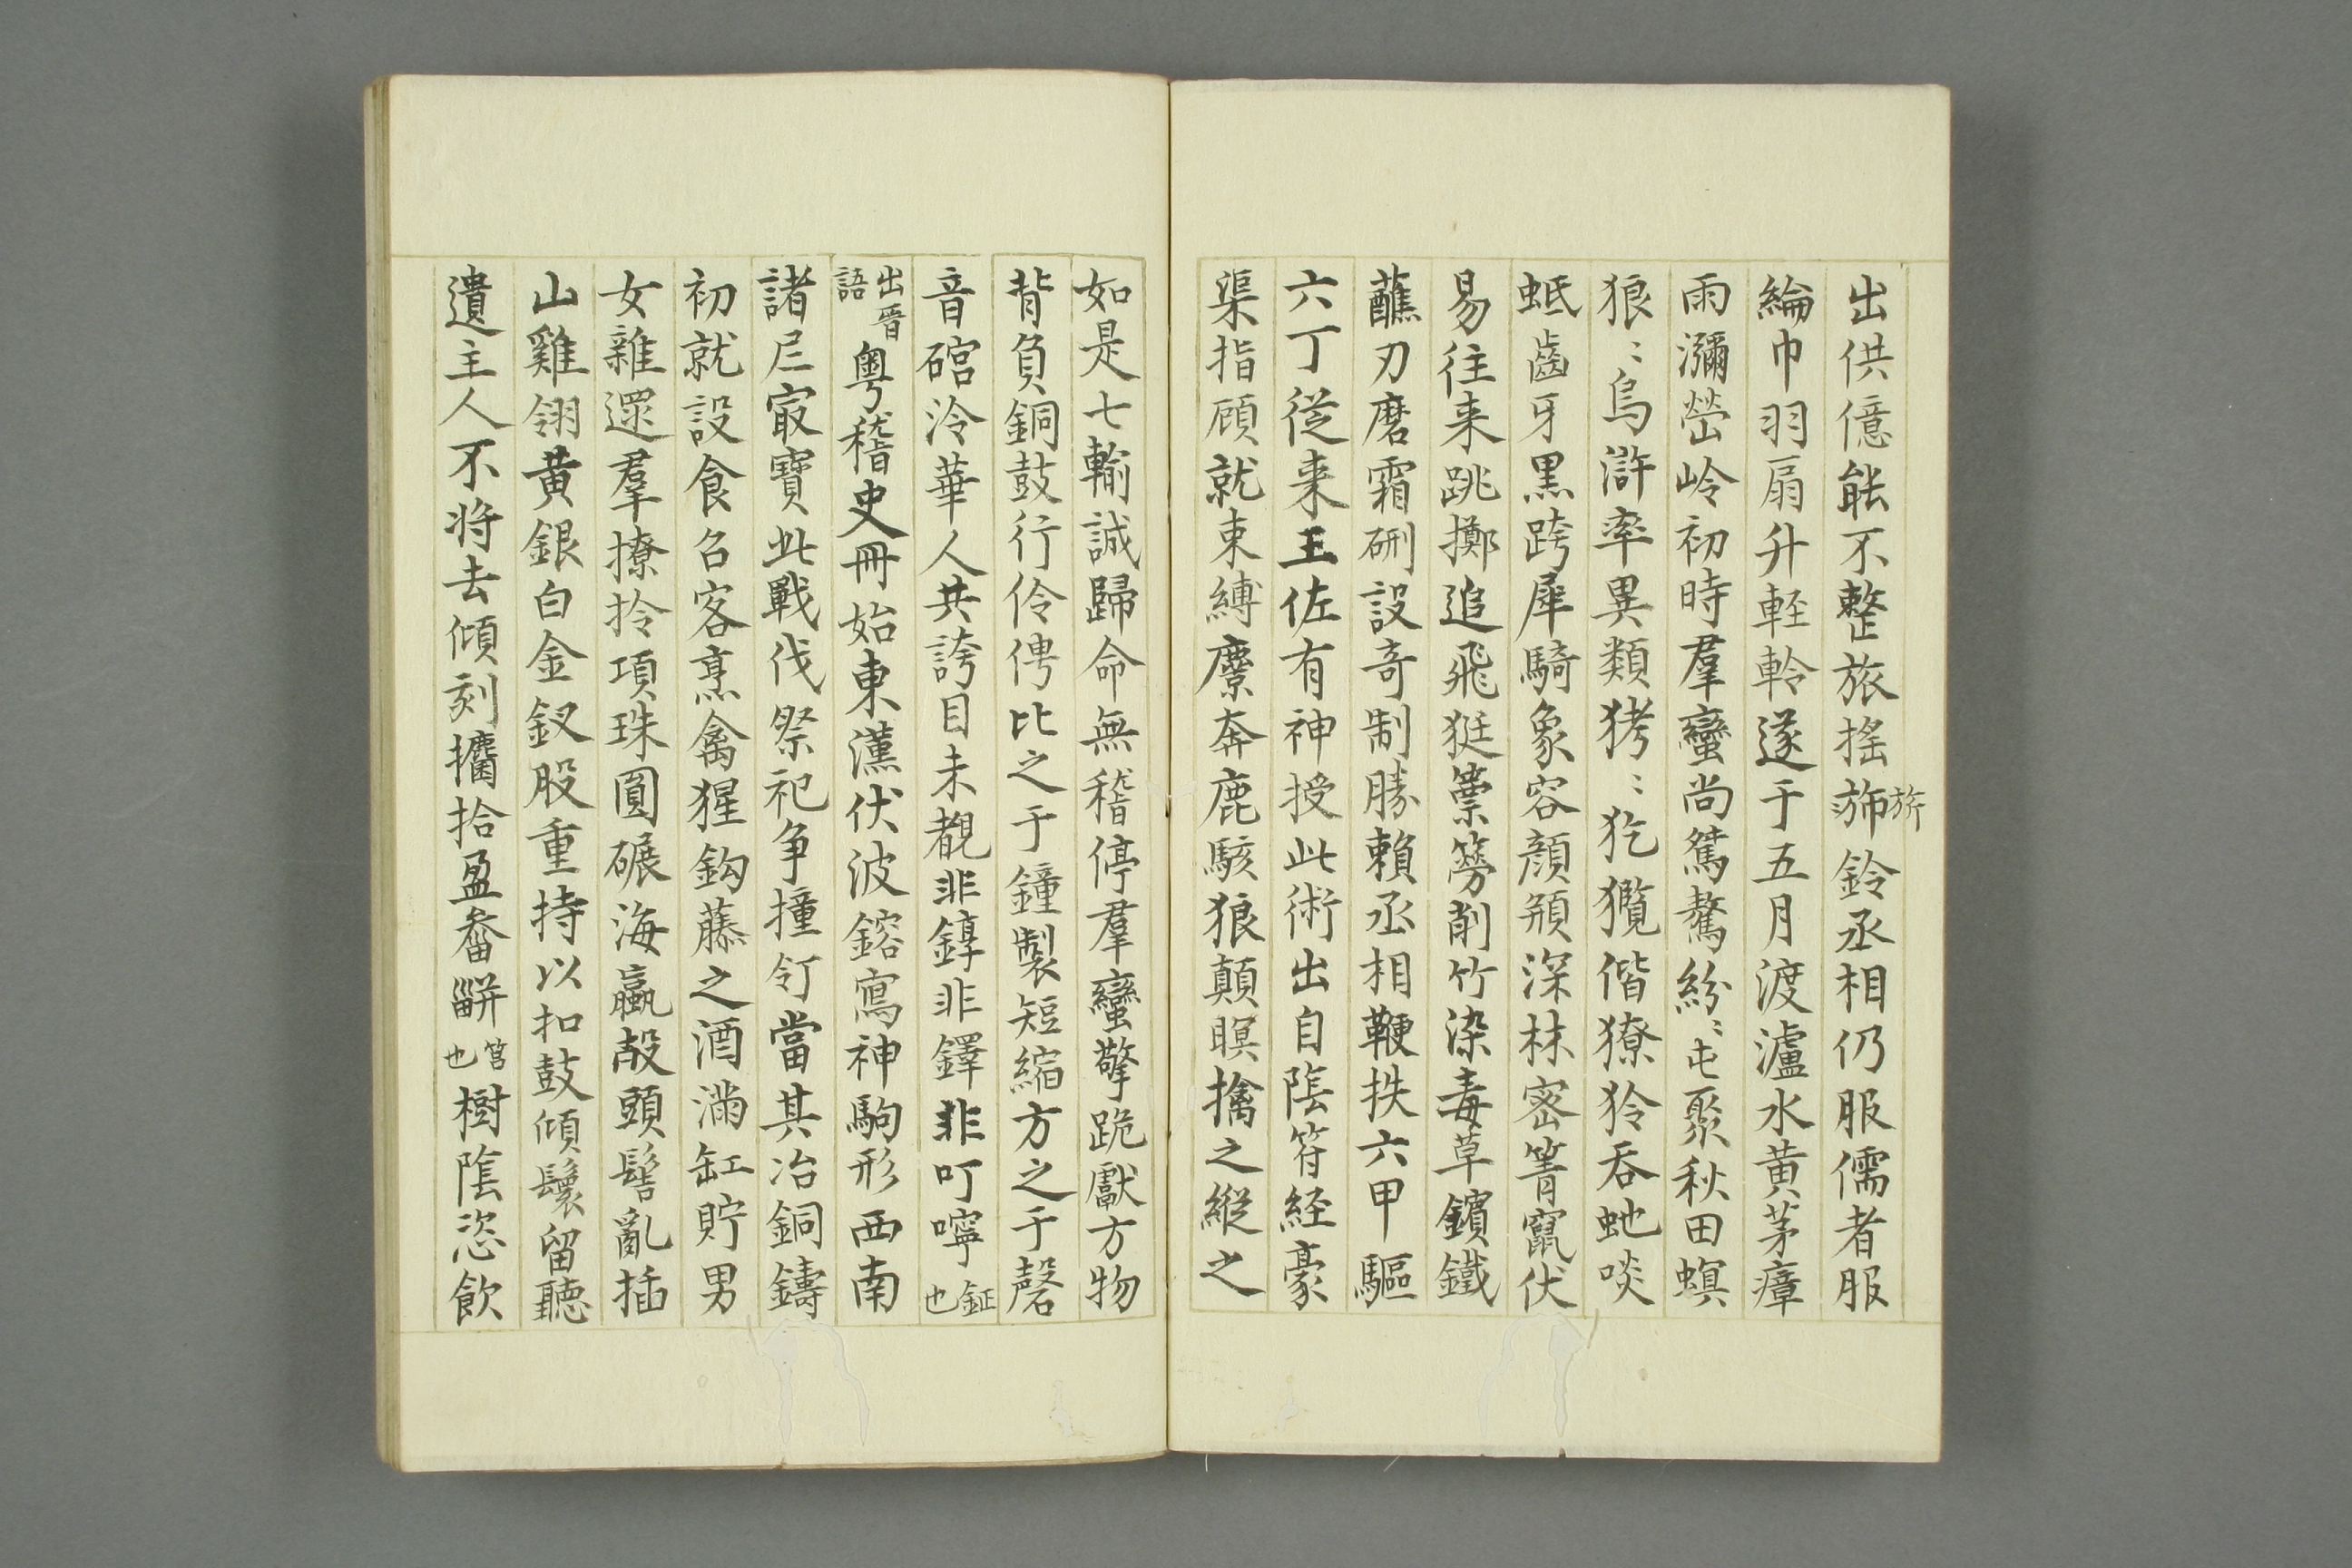 出供億能不整旅搖斾旂鈴丞相仍服儒者服
綸巾羽扇升軽軨遂于五月渡瀘水黄茅瘴
雨瀰嵤岭初時羣蠻尚鴑驁紛〻屯聚秋田螟
狼〻烏滸率異類㺒〻犵㺝偕獠狑吞虵啖
蚳齒牙黒跨犀騎象容顔頩深林宻箐竄伏
易徃来跳擲追飛㹶篻簩削竹染毒草鑌鐵
蘸刃磨霜硎設竒制勝賴丞相鞭抶六甲驅
六丁從来王佐有神授此術出自陰符経豪
渠指顧就束縛麇奔鹿駭狼顛瞑擒之縱之
如是七輸誠歸命無稽停羣蠻擎跪獻方物
背負銅鼓行伶俜比之于鐘製短縮方之于磬
音硿泠華人共誇目未覩非錞非鐸非叮嚀鉦也
出晉語粵稽史冊始東漢伏波鎔寫神駒形西南
諸𡰥㝡寶此戰伐祭祀争撞䤥當其冶銅鑄
初就設食召客烹禽猩鈎藤之酒滿缸貯男
女雜遝羣撩拎項珠圓碾海蠃殻頭髻亂插
山雞翎黄銀白金釵股重持以扣鼓傾鬟留聽
遺主人不将去傾刻攟拾盈畚䍈筥也樹陰恣飲